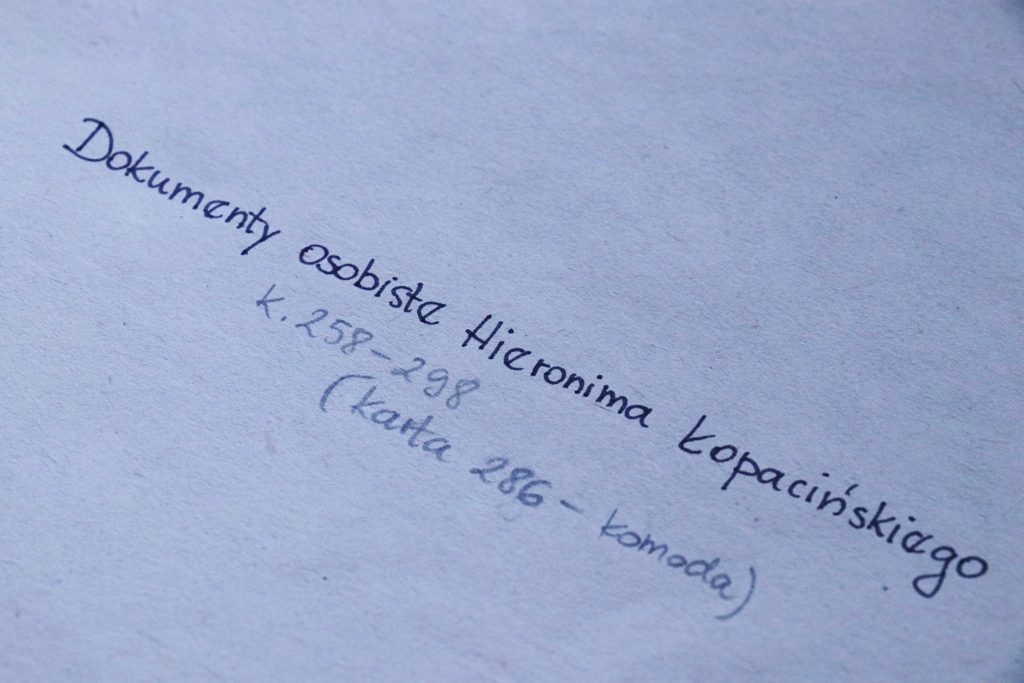 Dokumenty osobiste Hieronima Łopacińskiego
k. 258-298
(karta 286 - komoda)